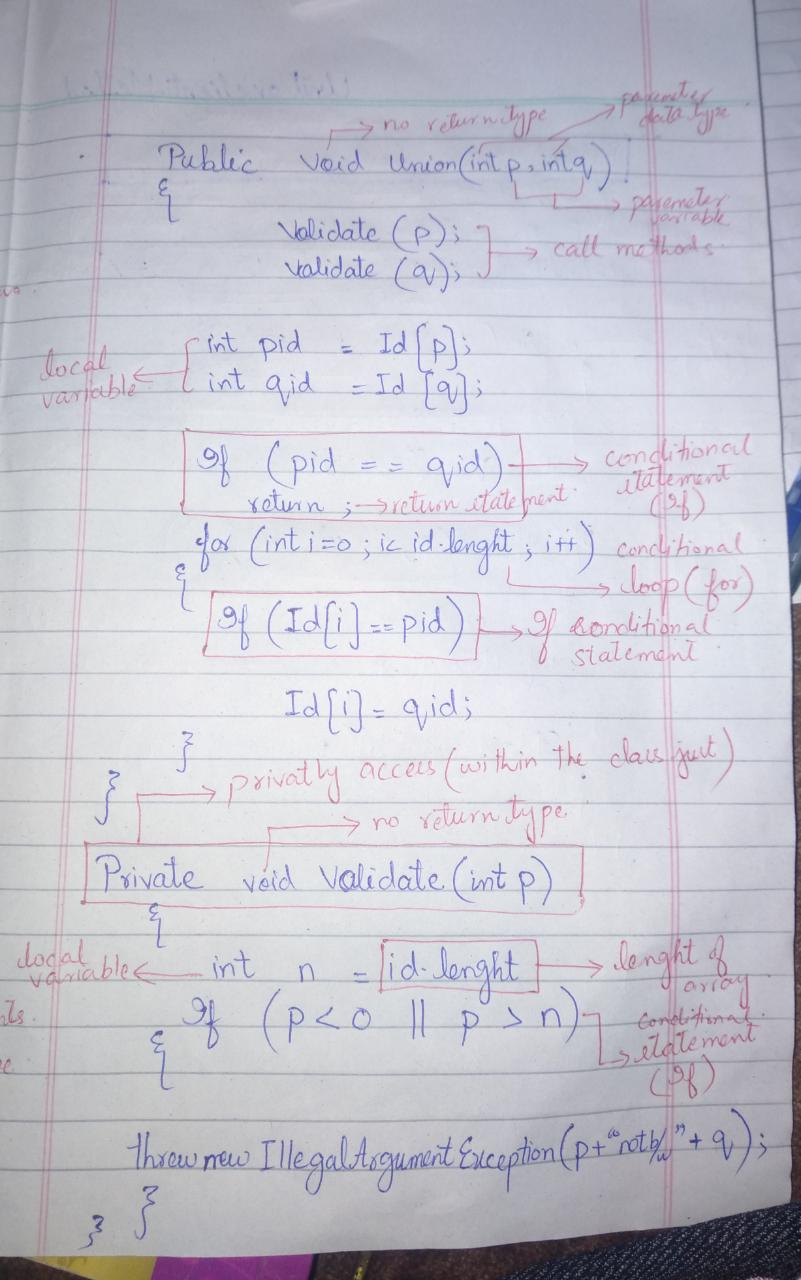 no return type
paremeter
data type
Public void Union(int p, int q)
{
paremeter
variable
Validate (p);
validate (q);
call methods
local
variable
int pid = Id [p];
int qid = Id [q];
If (pid == qid)
conditional
statement
(If)
return ; → return statement
for (int i=0 ; i< id.lenght ; i++)
conditional
loop (for)
{
If (Id[i] == pid)
If conditional
statement
Id[i] = qid;
}
}
privatly access (within the class just)
no return type
Private void Validate (int p)
{
local
variable
int n = id.lenght
lenght of
array
If (p<0 || p>n)
conditional
statement
(If)
{
threw new IllegalArgumentException (p+"not b/w"+ q);
}
}